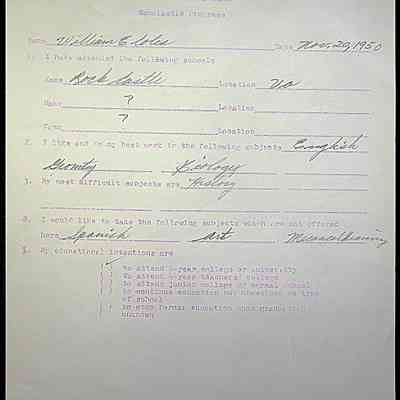 Scholastic Progress
Name William E Coles Date Nov. 20, 1950
1. I have attended the following schools
Name Rock Castle Location Va
Name ? Location
Name ? Location
2. I like and do my best work in the following subjects English
Geomity Biology
3. My most difficult subjects are History
4. I would like to take the following subjects which are not offered
here Spanish Art Mecanical Drawing
5. My educational intentions are
to attend 4-year college or university
to attend 4-year teachers' college
to attend junior college or normal school
to continue education but undecided as to type
of school
to stop formal education upon graduation
unknown